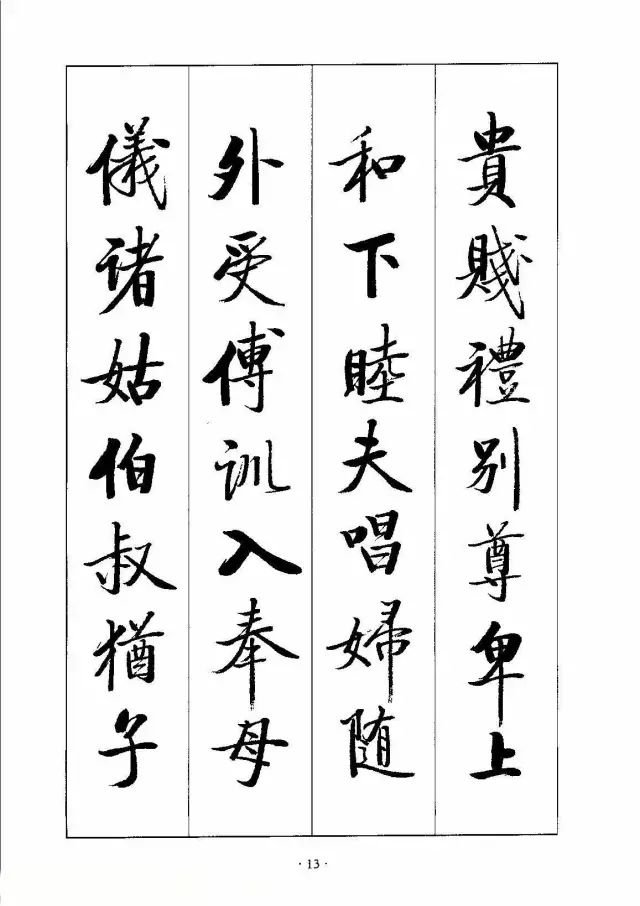 貴賤禮別尊卑上
和下睦夫唱婦随
外受傅訓入奉母
儀諸姑伯叔猶子
· 13 ·